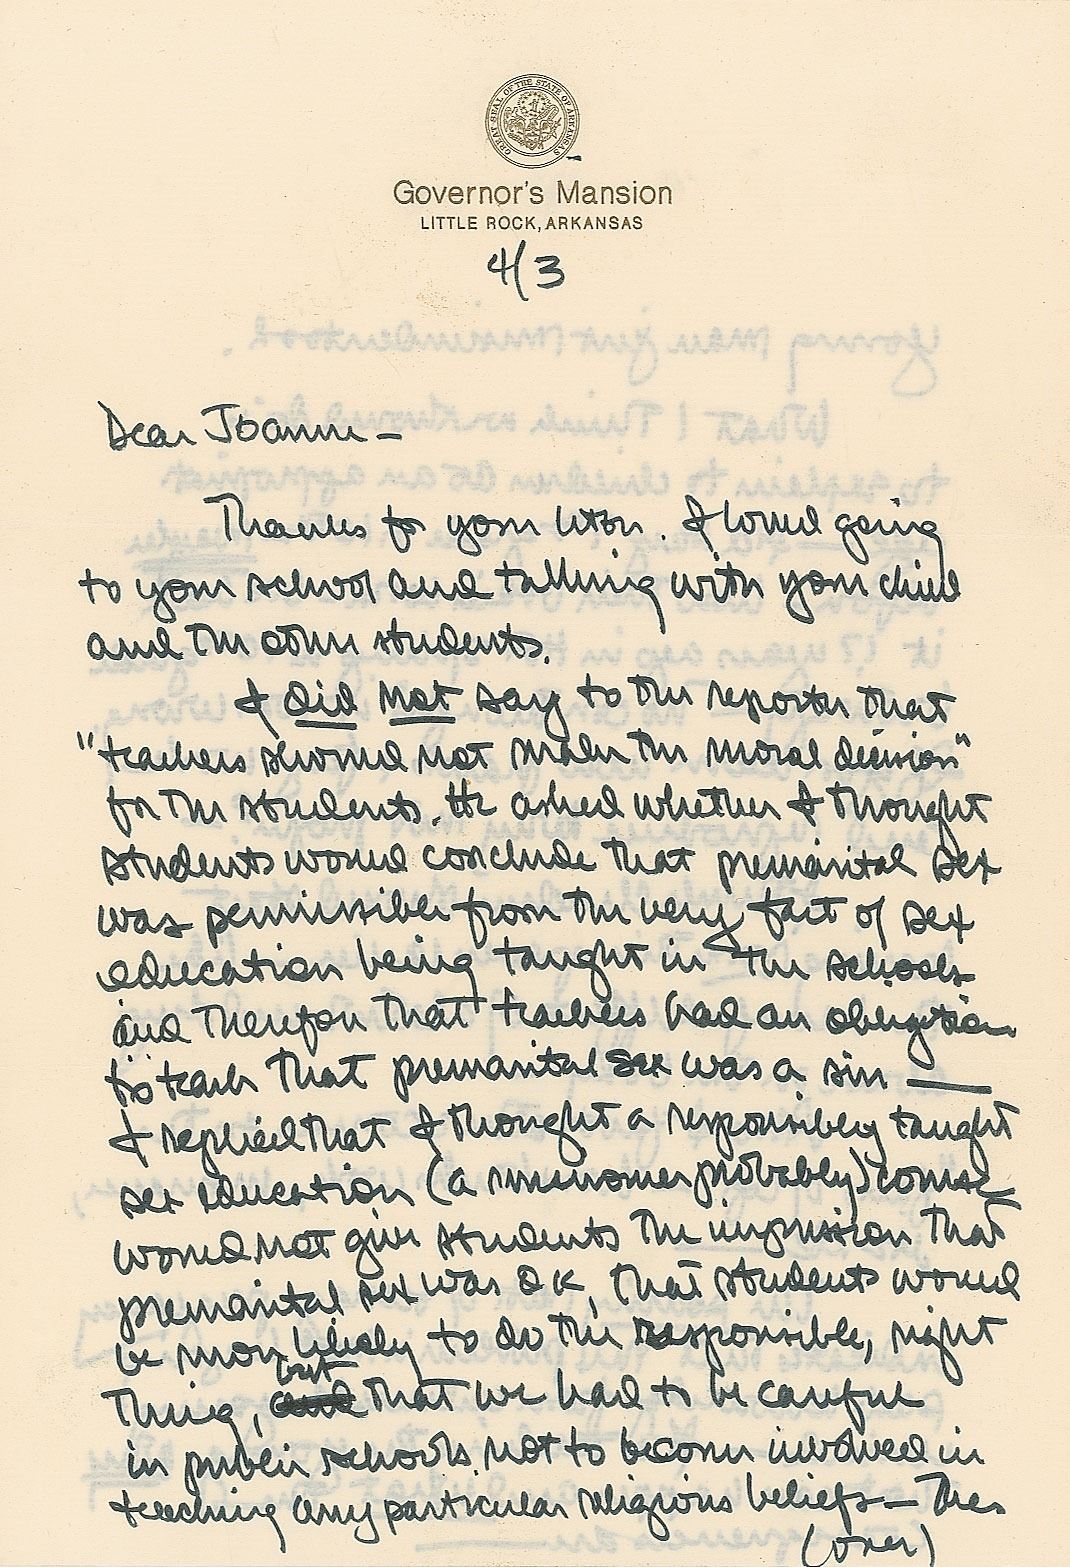 GREAT SEAL OF THE STATE OF ARKANSAS
Governor's Mansion
LITTLE ROCK, ARKANSAS
4/3
Dear Joanne –
Thanks for your letter. I loved going
to your school and talking with your child
and the other students.
I did not say to the reporter that
"teachers should not make the moral decision"
for the students. He asked whether I thought
students would conclude that premarital sex
was permissible from the very fact of sex
education being taught in the schools
and therefore that teachers had an obligation
to teach that premarital sex was a sin —
I replied that I thought a responsibly taught
sex education (a misnomer probably) course
would not give students the impression that
premarital sex was OK, that students would
be more likely to do the responsible, right
thing, but that we had to be careful
in public schools not to become involved in
teaching any particular religious beliefs — The
(over)